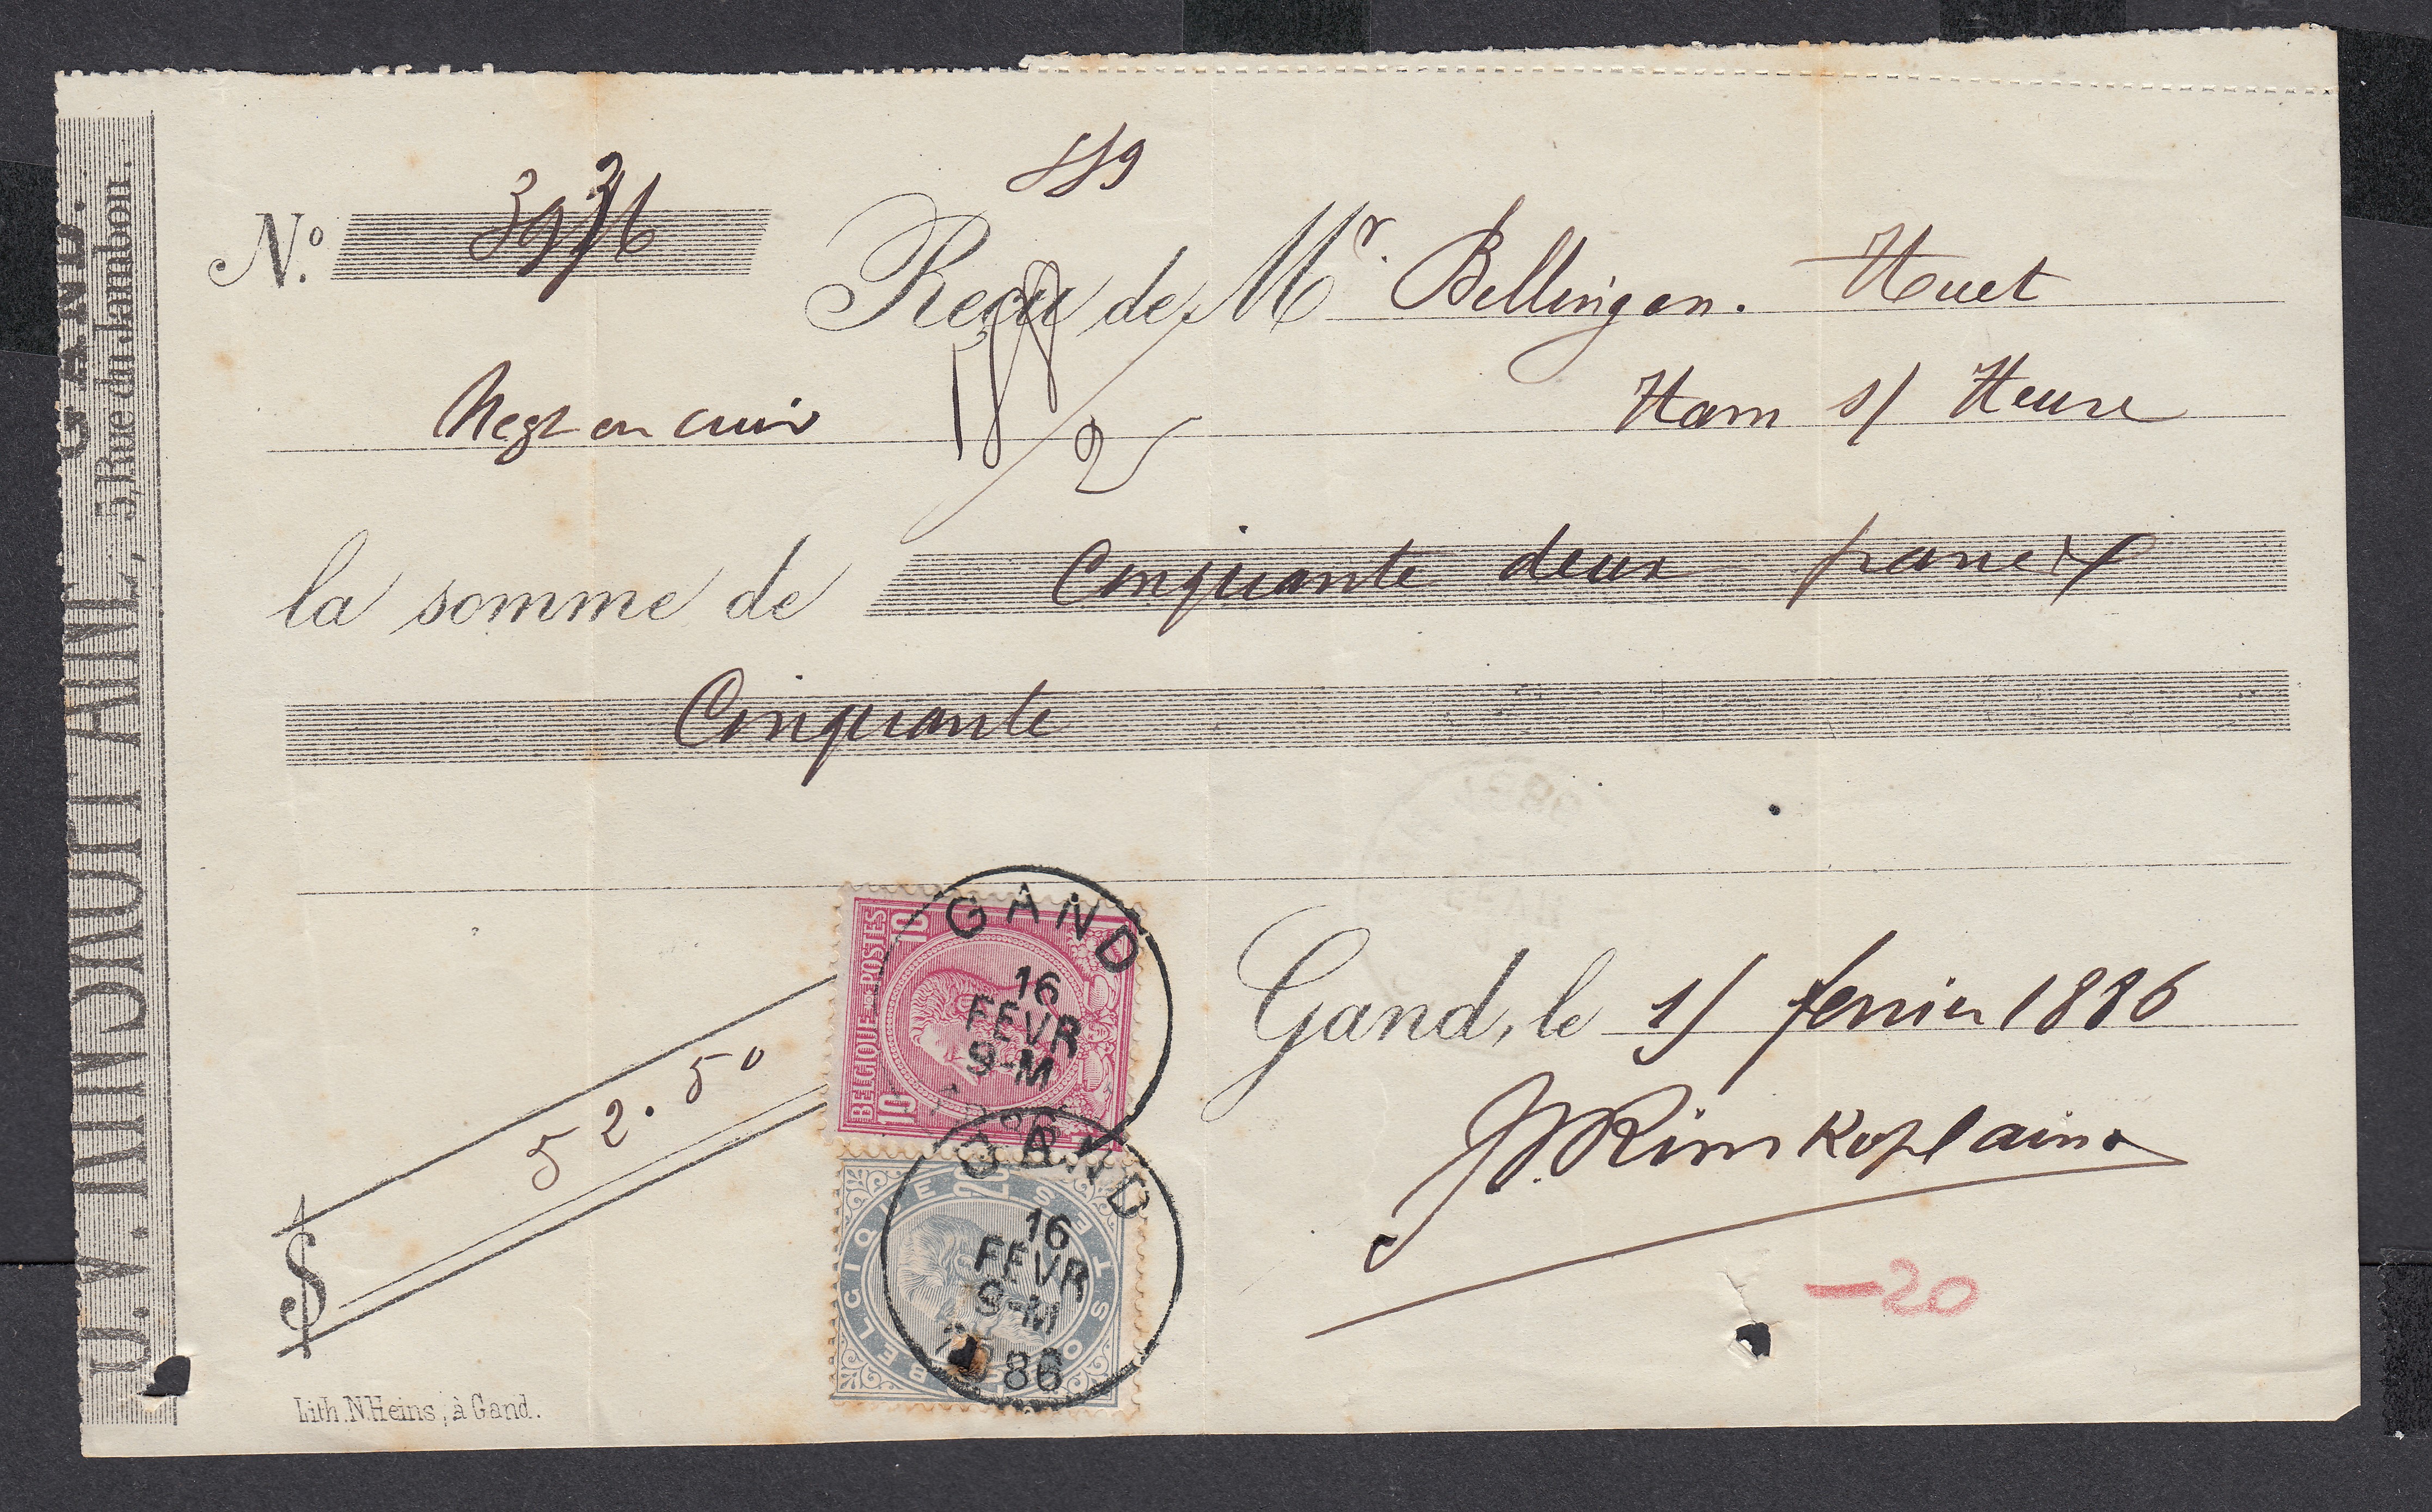 GAND.
5, Rue du Jambon.
AINÉ,
559
N.º 3976
Reçu de Mr. Bellingen. Huet
Negt en cuir Ham s/ Heure
la somme de Cinquante deux francs
Cinquante
BELGIQUE POSTES
10 10
GAND
16
FEVR
9-M
GAND
16
FEVR
9-M
1886
Gand, le 15 fevrier 1886
$ 52.50
-20
Lith. N. Heins, à Gand.